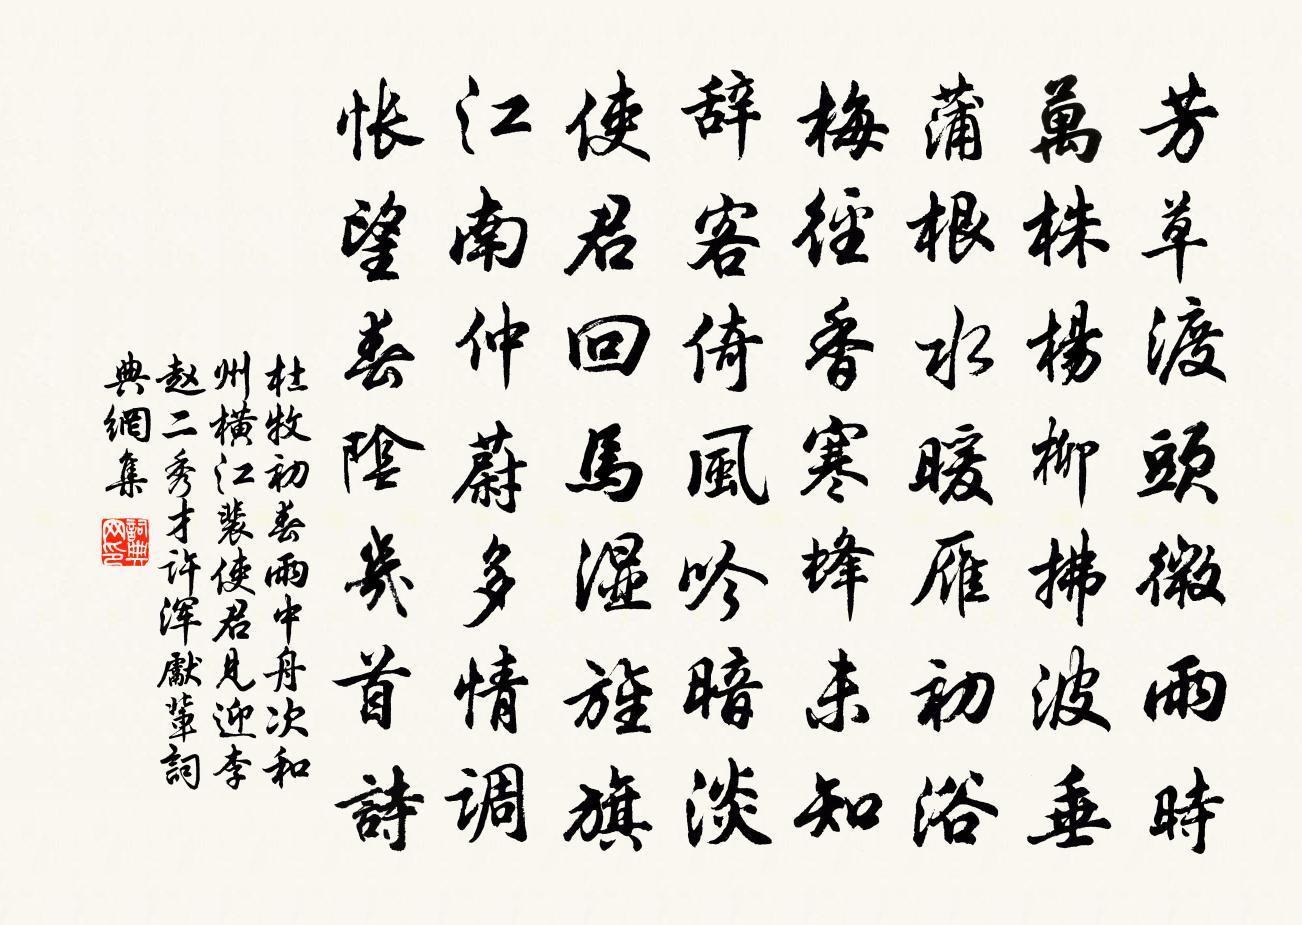 芳草渡頭微雨時
萬株楊柳拂波垂
蒲根水暖雁初浴
梅徑香寒蜂未知
辞客倚風吟暗淡
使君回馬湿旌旗
江南仲蔚多情调
怅望春陰幾首詩
杜牧初春雨中舟次和
州横江裴使君見迎李
赵二秀才許渾獻輩詞
典網集
詞典网印